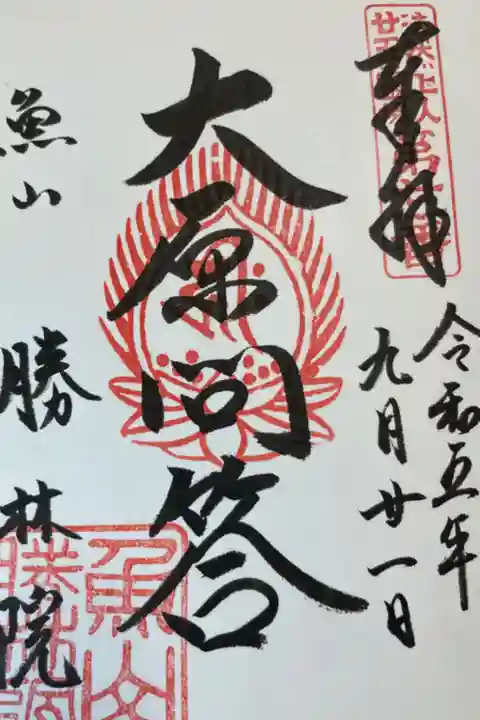 奉拝
令和五年
九月廿一日
大原問答
魚山
勝林院